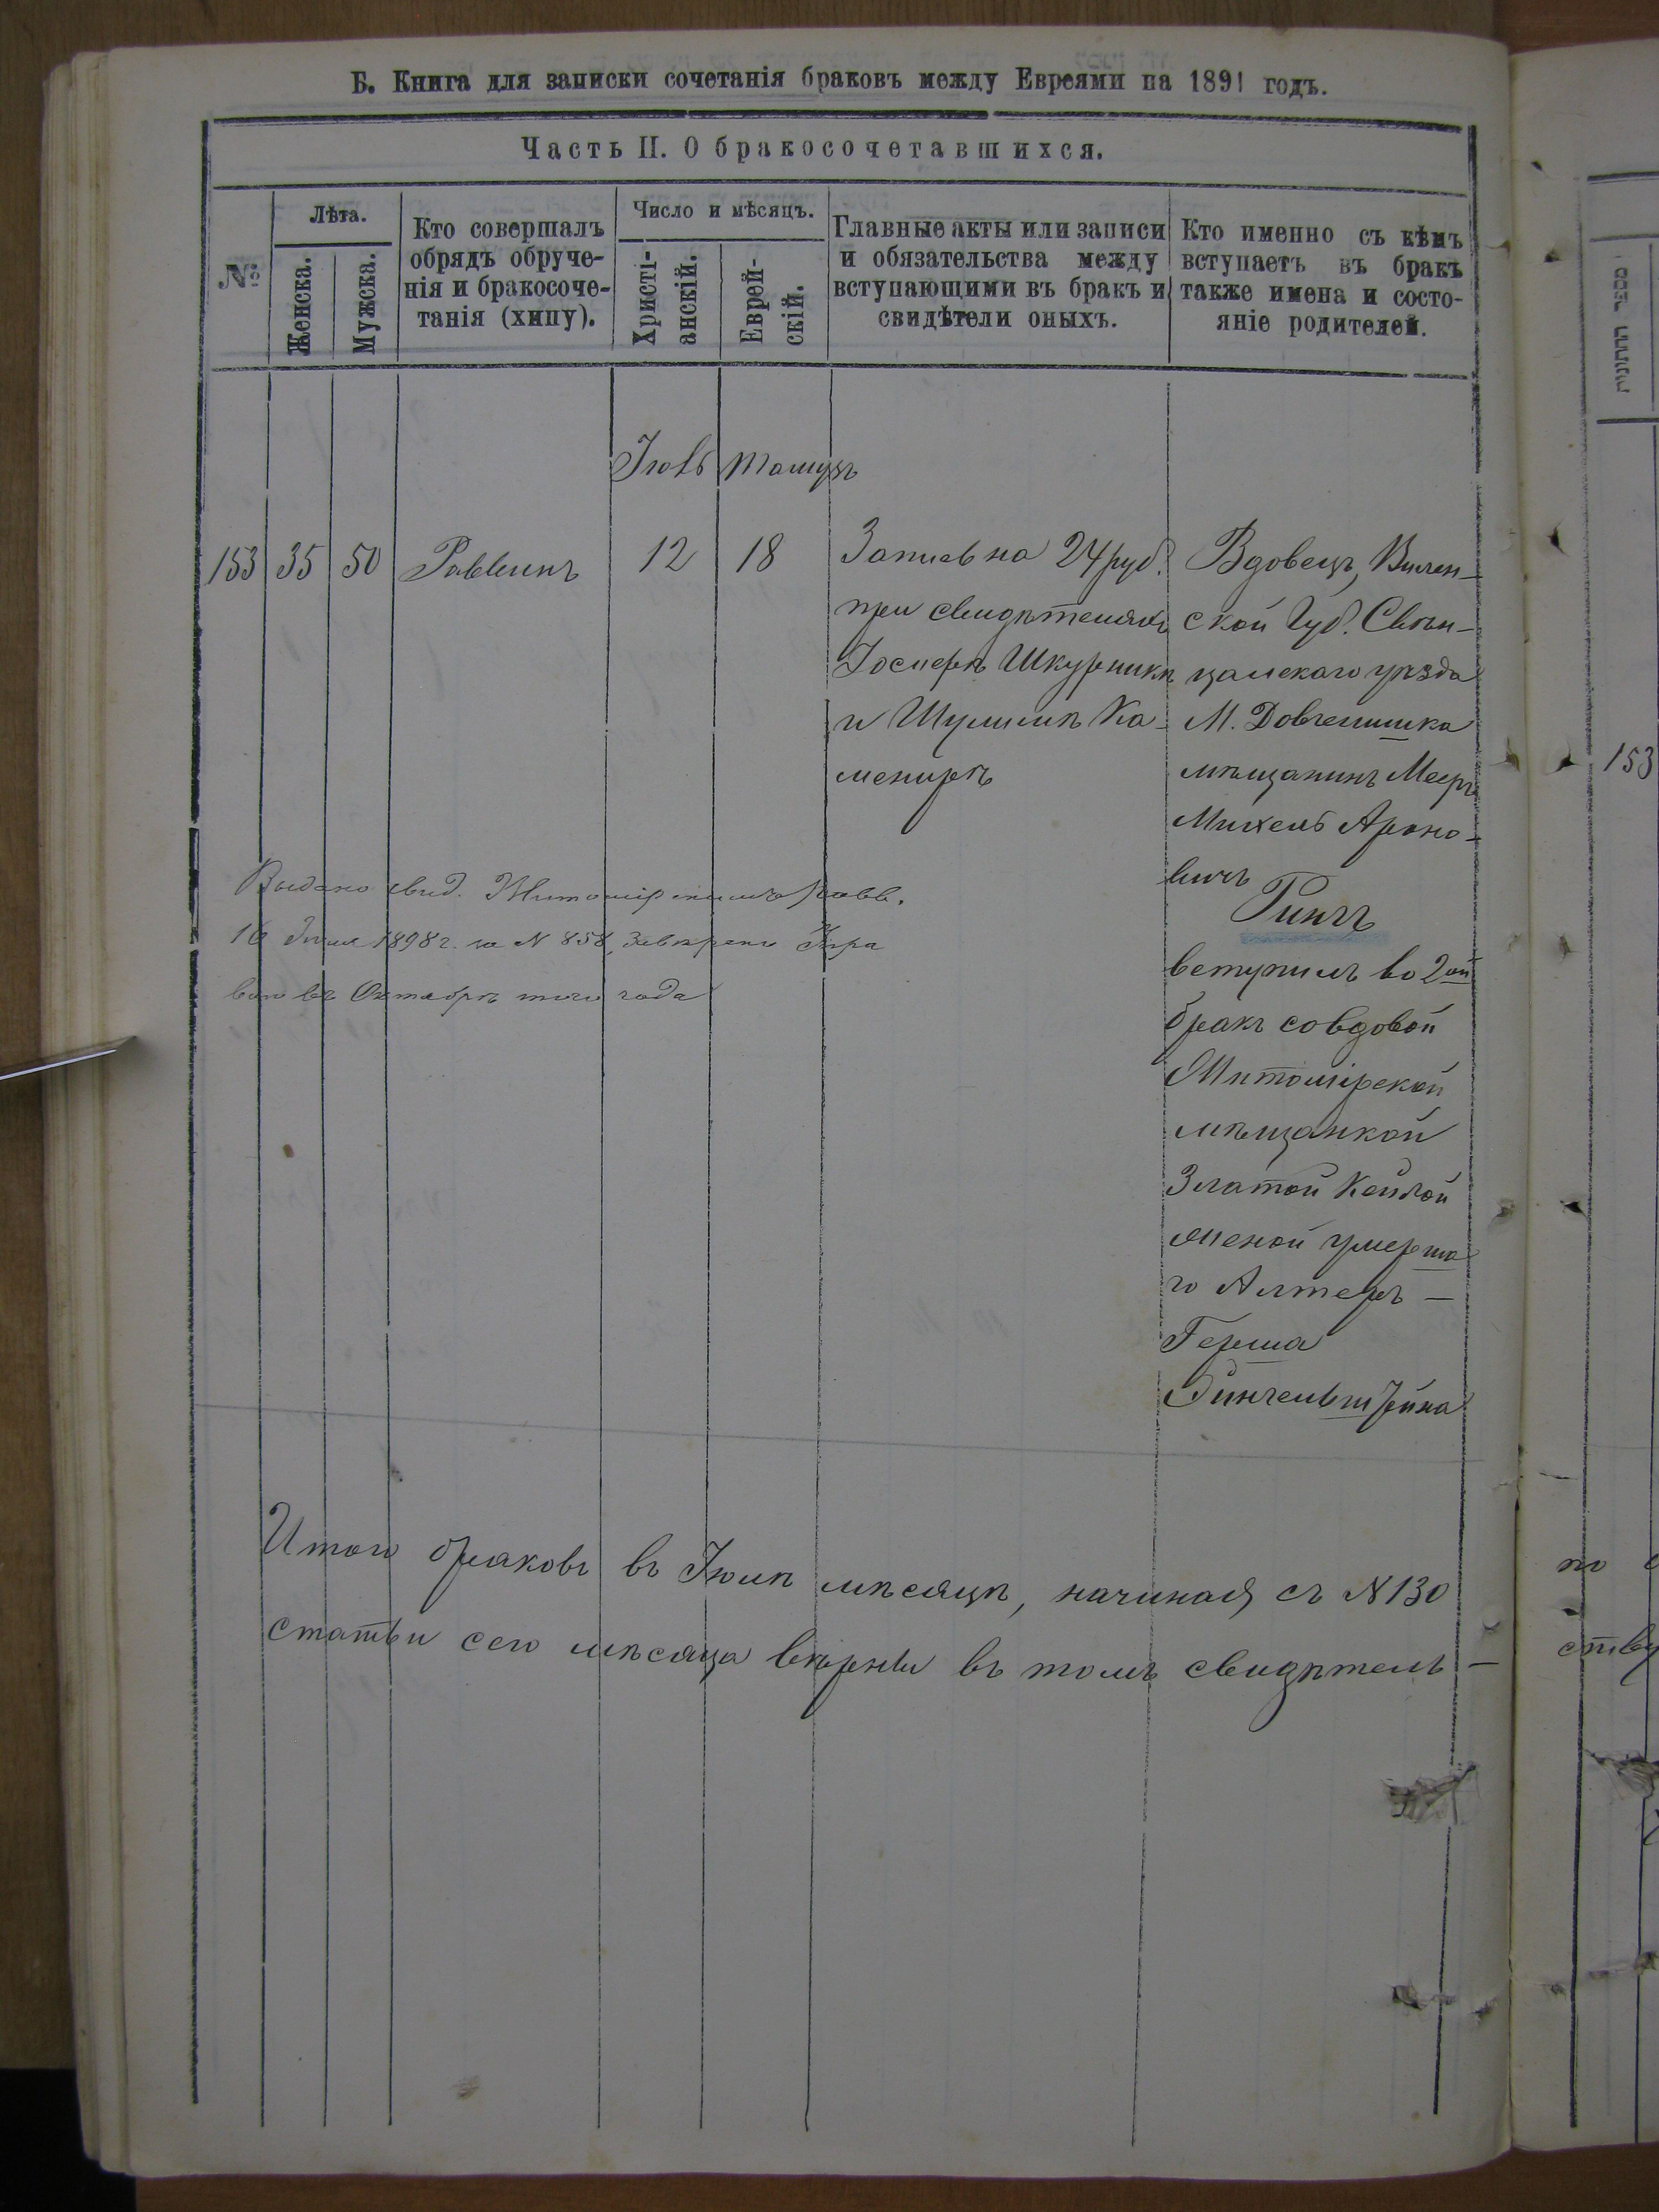 Б. Книга для записки сочетанія браковъ между Евреями на 1891 годъ.
Часть II. О бракосочетавшихся.
№
Лѣта.
Женска.
Мужска.
Кто совершалъ
обрядъ обруче-
нія и бракосоче-
танія (хипу).
Число и мѣсяцъ.
Христі-
анскій.
Еврей-
скій.
Главные акты или записи
и обязательства между
вступающими въ бракъ и
свидѣтели оныхъ.
Кто именно съ кѣмъ
вступаетъ въ бракъ
также имена и состо-
яніе родителей.
מספר החתונות
Іюль Тамузъ
153 35 50 Раввинъ 12 18
Запись на 24 руб.
при свидѣтеляхъ
Іосиферъ Шкурникъ
и Шулимъ Ка-
менирѣ
Вдовецъ, Вилен-
ской Губ. Свѣн-
цянскаго уѣзда
М. Довгелишка
мѣщанинъ Мееръ
Михель Ароно-
вичъ
Рингъ
вступилъ во 2ой
бракъ со вдовой
Житомірской
мѣщанкой
Златой Кейлой
женой умерша
го Алтеръ -
Герша
Фингельштейна
Выдано свид. Житомірскимъ равв.
16 Іюля 1898 г. за N 858, завѣрено Упра
вою въ Октябрѣ того года
Итого браковъ въ Іюлѣ мѣсяцѣ, начиная съ N 130
статьи сего мѣсяца вѣрны въ томъ свидѣтель-
153
по
ству